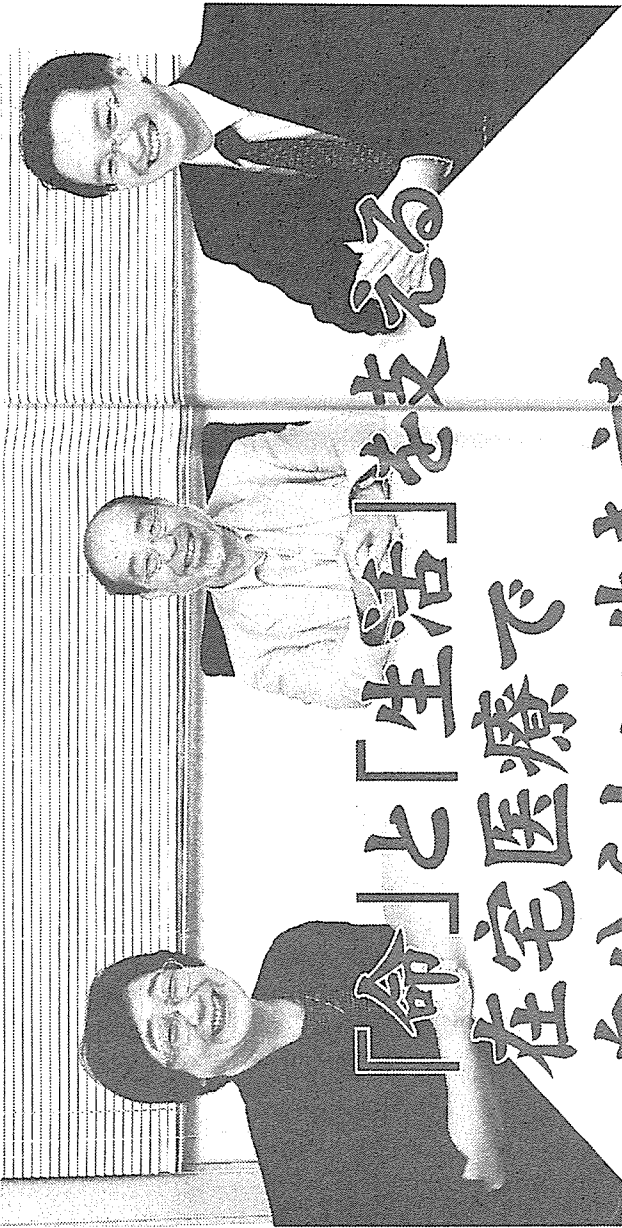 「命」と「生活」を支える
在宅医療で